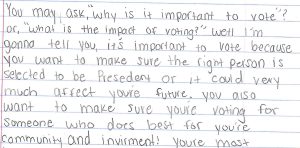 You may ask, "why is it important to vote"?
or, "what is the impact of voting?" well I'm
gonna tell you, it's important to vote because
you want to make sure the right person is
selected to be Presedent or it could very
much affect youre future. you also
want to make sure you're voting for
someone who does best for you're
community and invirment! youre most